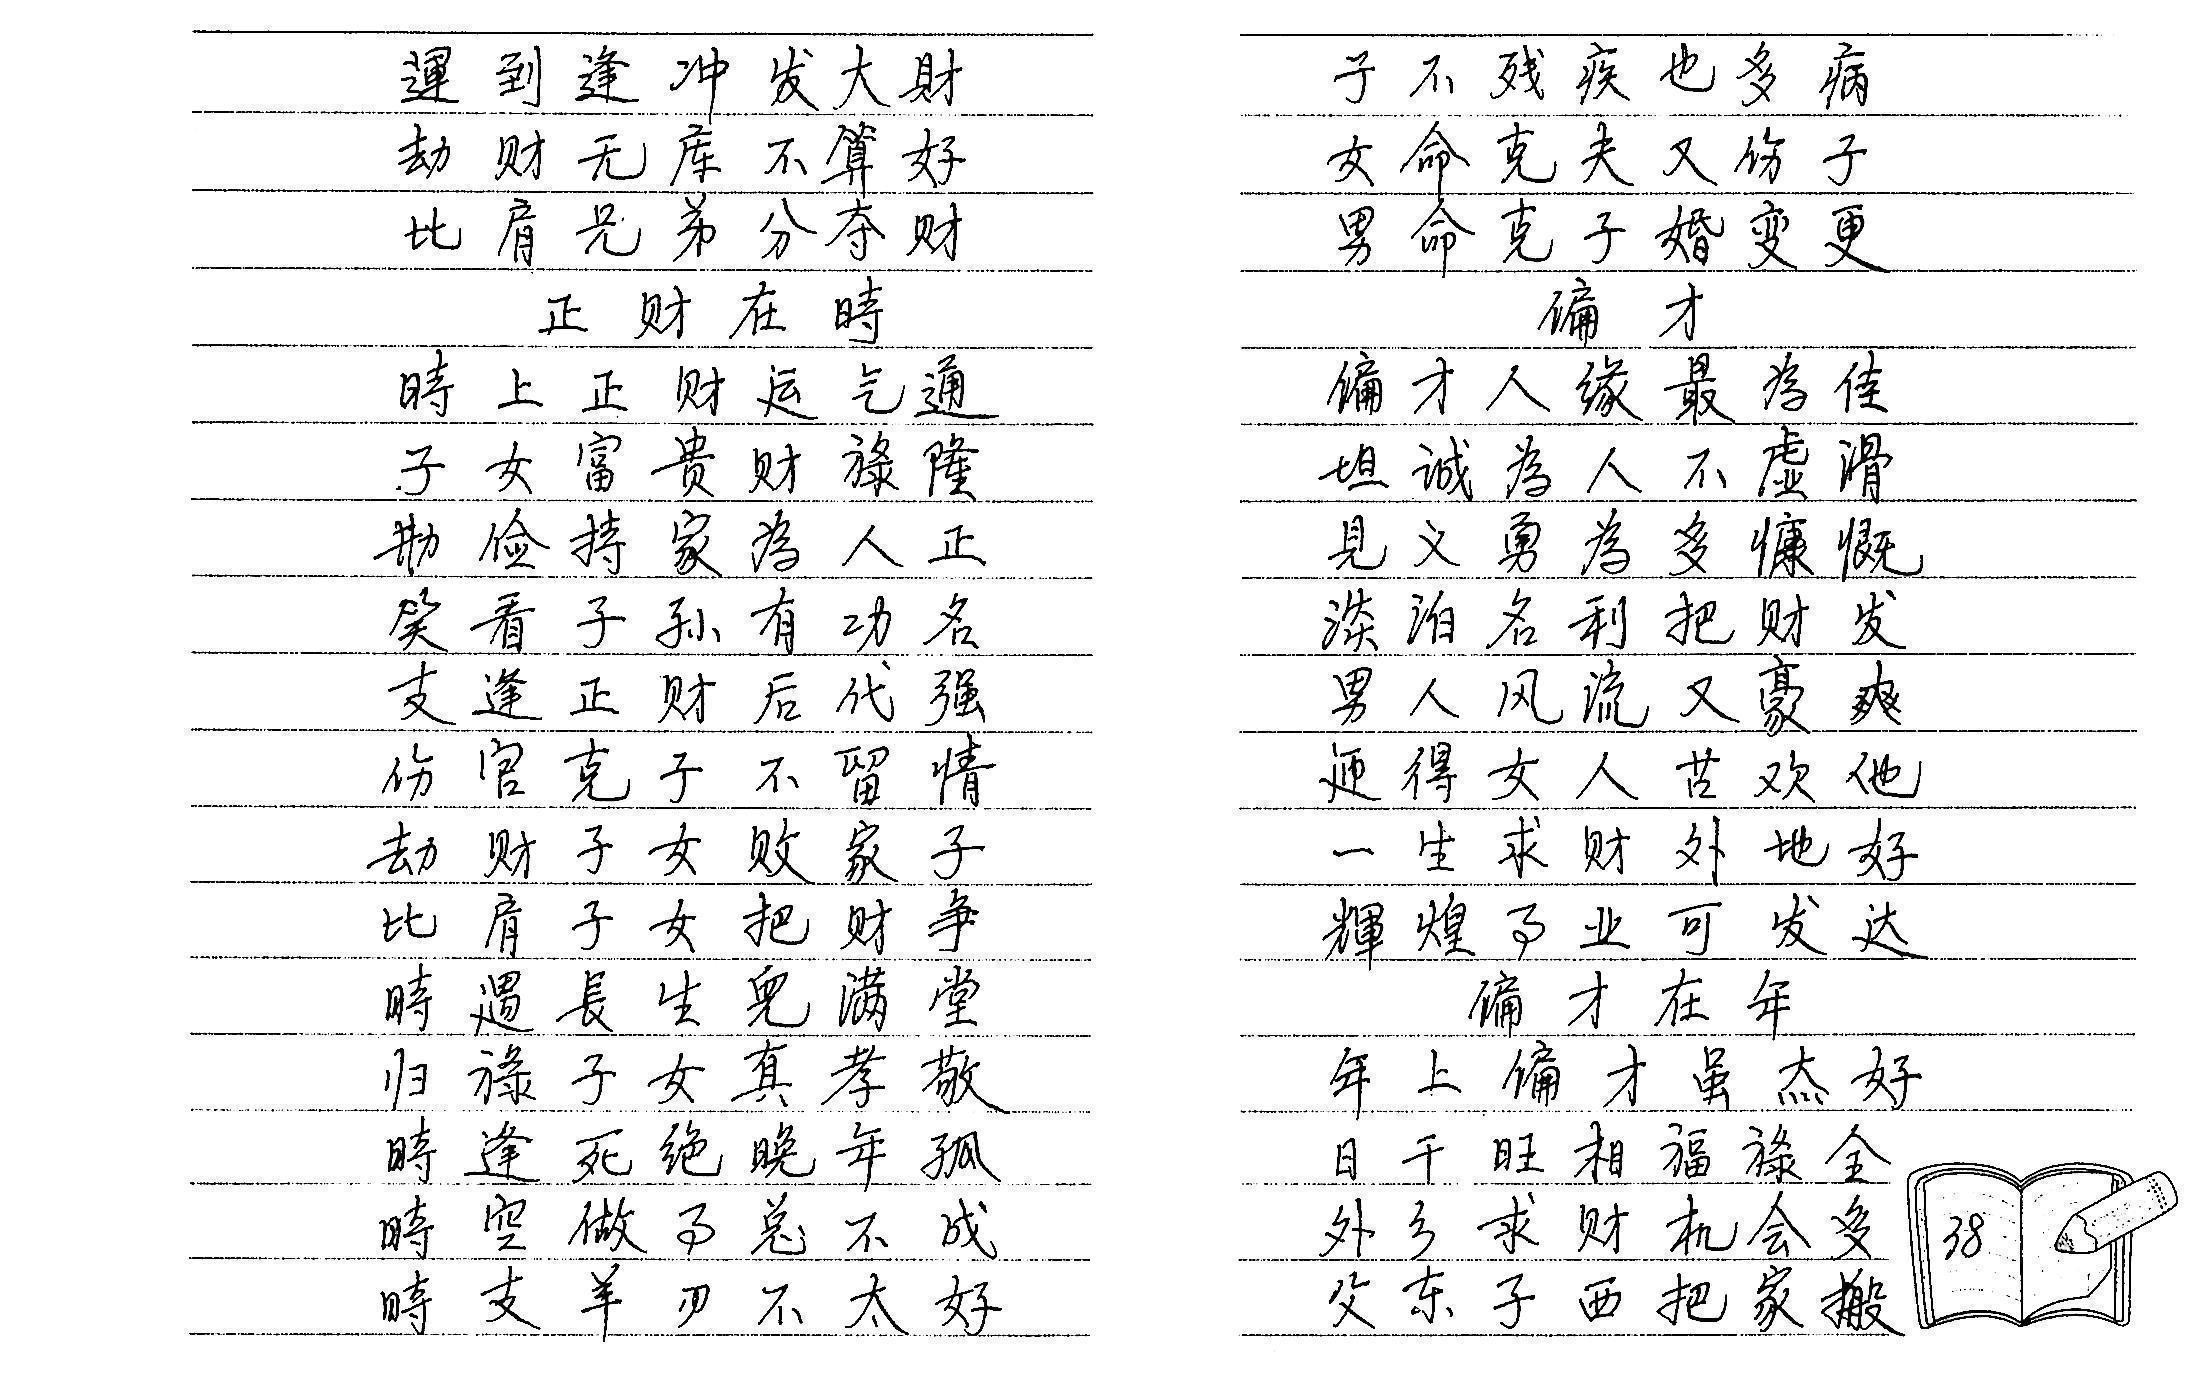 運到逢冲发大財
劫财无库不算好
比肩兄弟分夺财
正财在時
時上正财运气通
子女富贵财祿隆
勤俭持家為人正
笑看子孙有功名
支逢正财后代强
伤官克子不留情
劫财子女败家子
比肩子女把财争
時遇長生兒满堂
归祿子女真孝敬
時逢死绝晚年孤
時空做事总不成
時支羊刃不太好
子不残疾也多病
女命克夫又伤子
男命克子婚变更
偏才
偏才人缘最為佳
坦诚為人不虚滑
見义勇為多慷慨
淡泊名利把财发
男人风流又豪爽
迊得女人苦欢他
一生求财外地好
輝煌事业可发达
偏才在年
年上偏才虽杰好
日干旺相福祿全
外乡求财机会多
父东子西把家搬
38